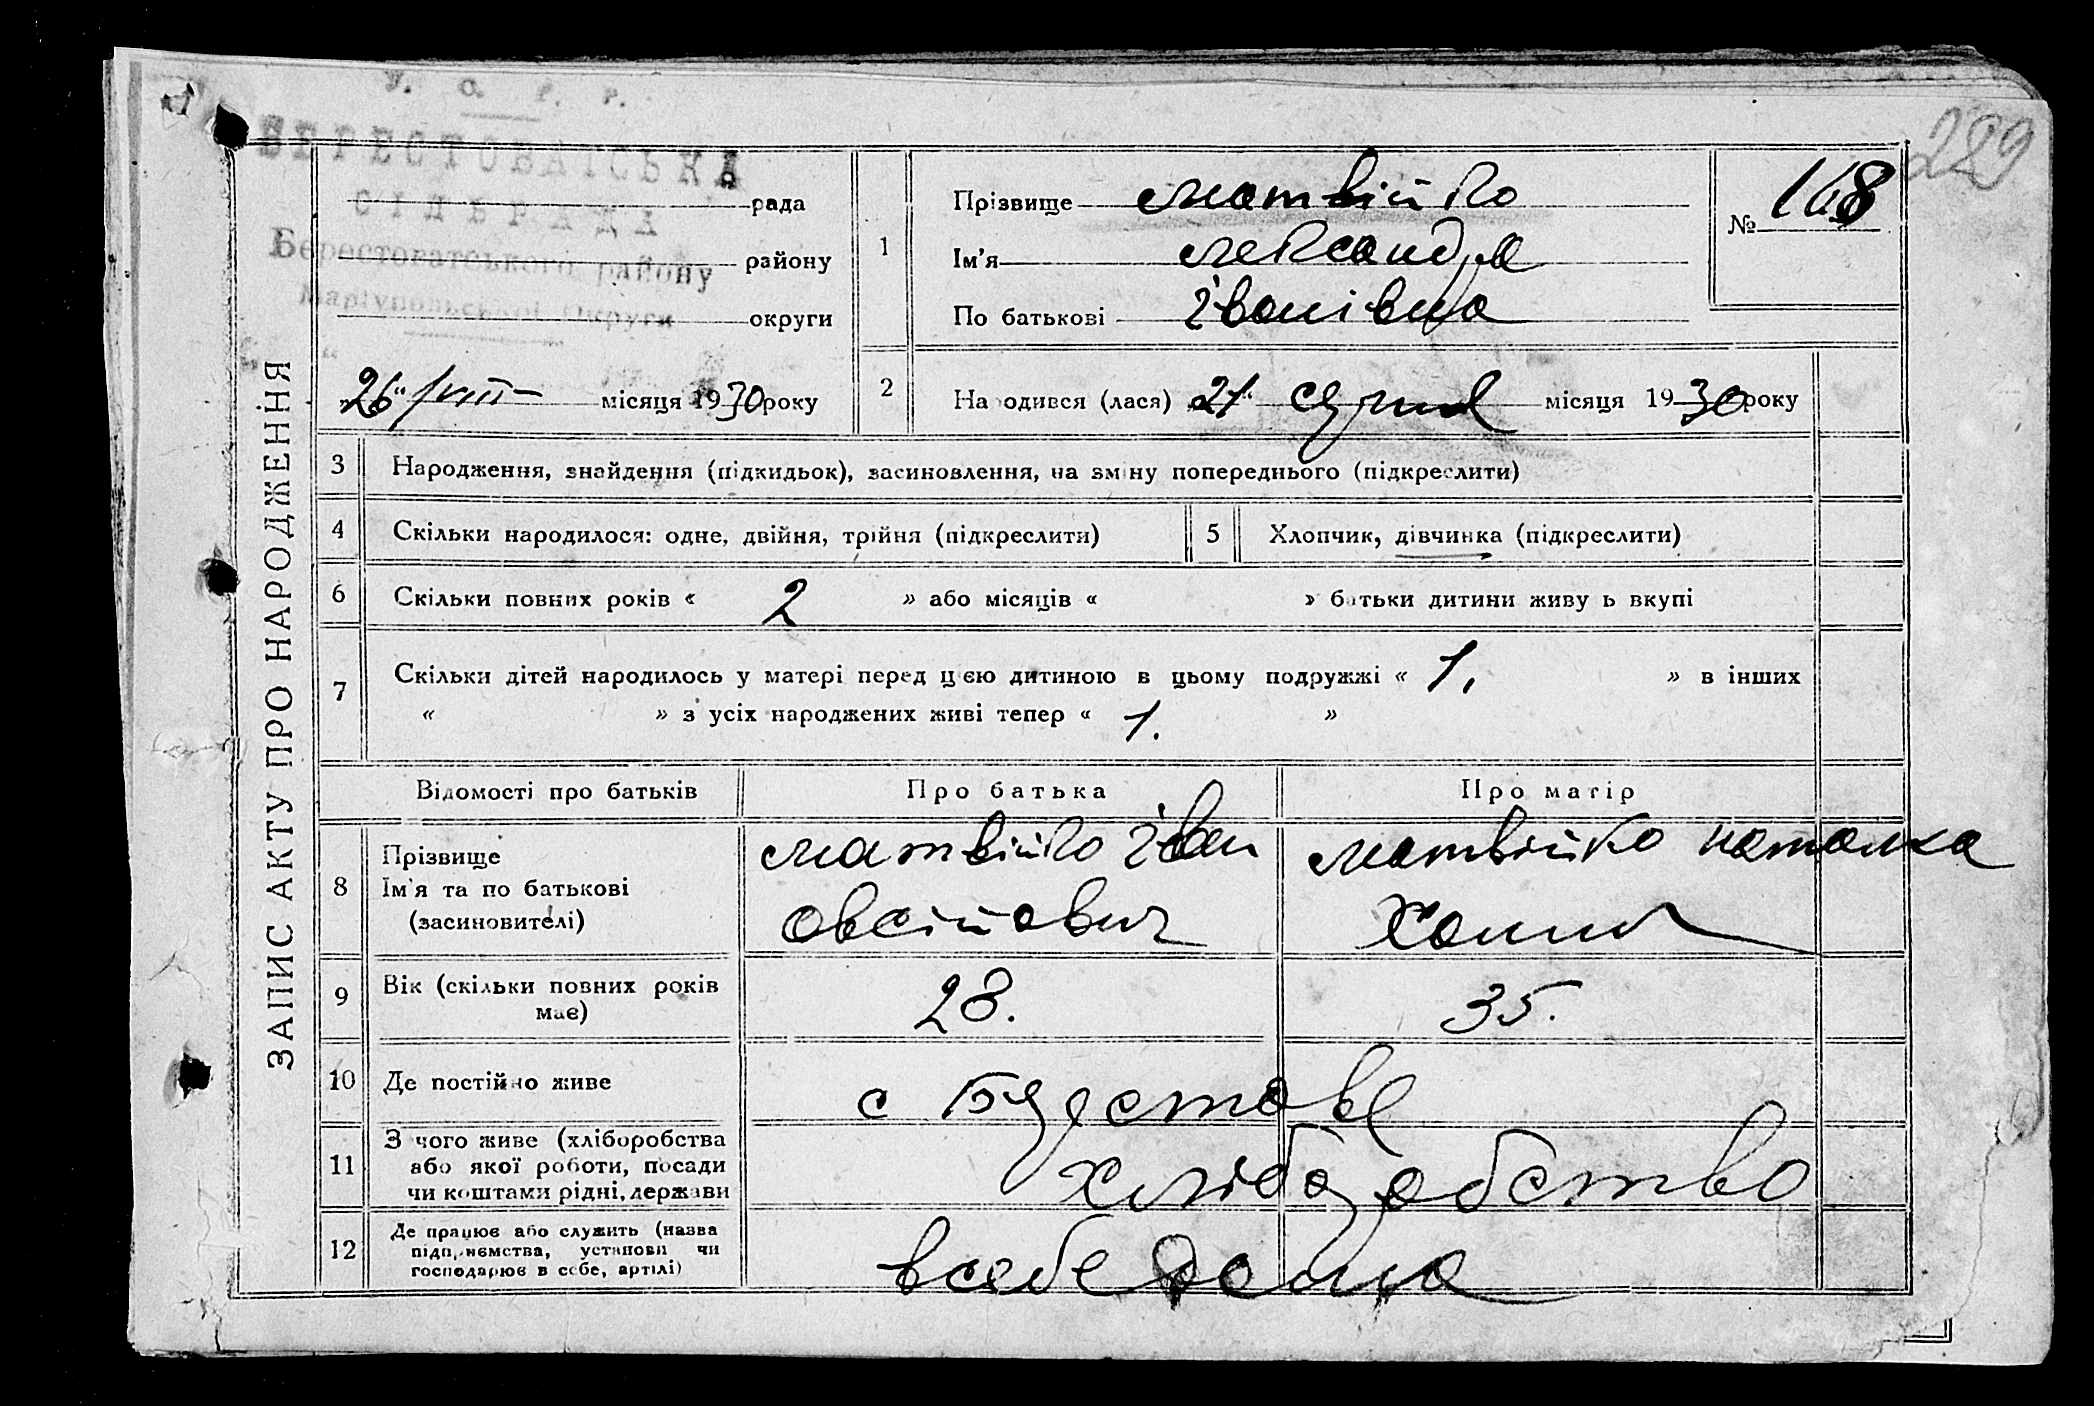 У. С. Р. Р.
289
БЕРЕСТОВАТСЬКА
СІЛЬРАДА
Берестоватського району
Маріупольської округи
рада
району
округи
„26“ VIII місяця 1930 року
ЗАПИС АКТУ ПРО НАРОДЖЕННЯ
1
Прізвище Матвійко
Ім'я Лександра
По батькові Іванівна
№ 168
2
Народився (лася) „21“ серпня місяця 1930 року
3 Народження, знайдення (підкидьок), засиновлення, на зміну попереднього (підкреслити)
4 Скільки народилося: одне, двійня, трійня (підкреслити)
5 Хлопчик, дівчинка (підкреслити)
6 Скільки повних років « 2 » або місяців « » батьки дитини живуть вкупі
7 Скільки дітей народилось у матері перед цією дитиною в цьому подружжі « 1. » в інших
« » з усіх народжених живі тепер « 1. »
Відомості про батьків Про батька Про матір
8 Прізвище
Ім'я та по батькові
(засиновителі)
Матвійко Іван
Овсійович
Матвійко Наталка
9 Вік (скільки повних років
має)
28.
35.
10 Де постійно живе
с
11 З чого живе (хліборобства
або якої роботи, посади
чи коштами рідні, держави
хліборобство
12 Де працює або служить (назва
підприємства, установи чи
господарює в себе, артілі)
в себе дома